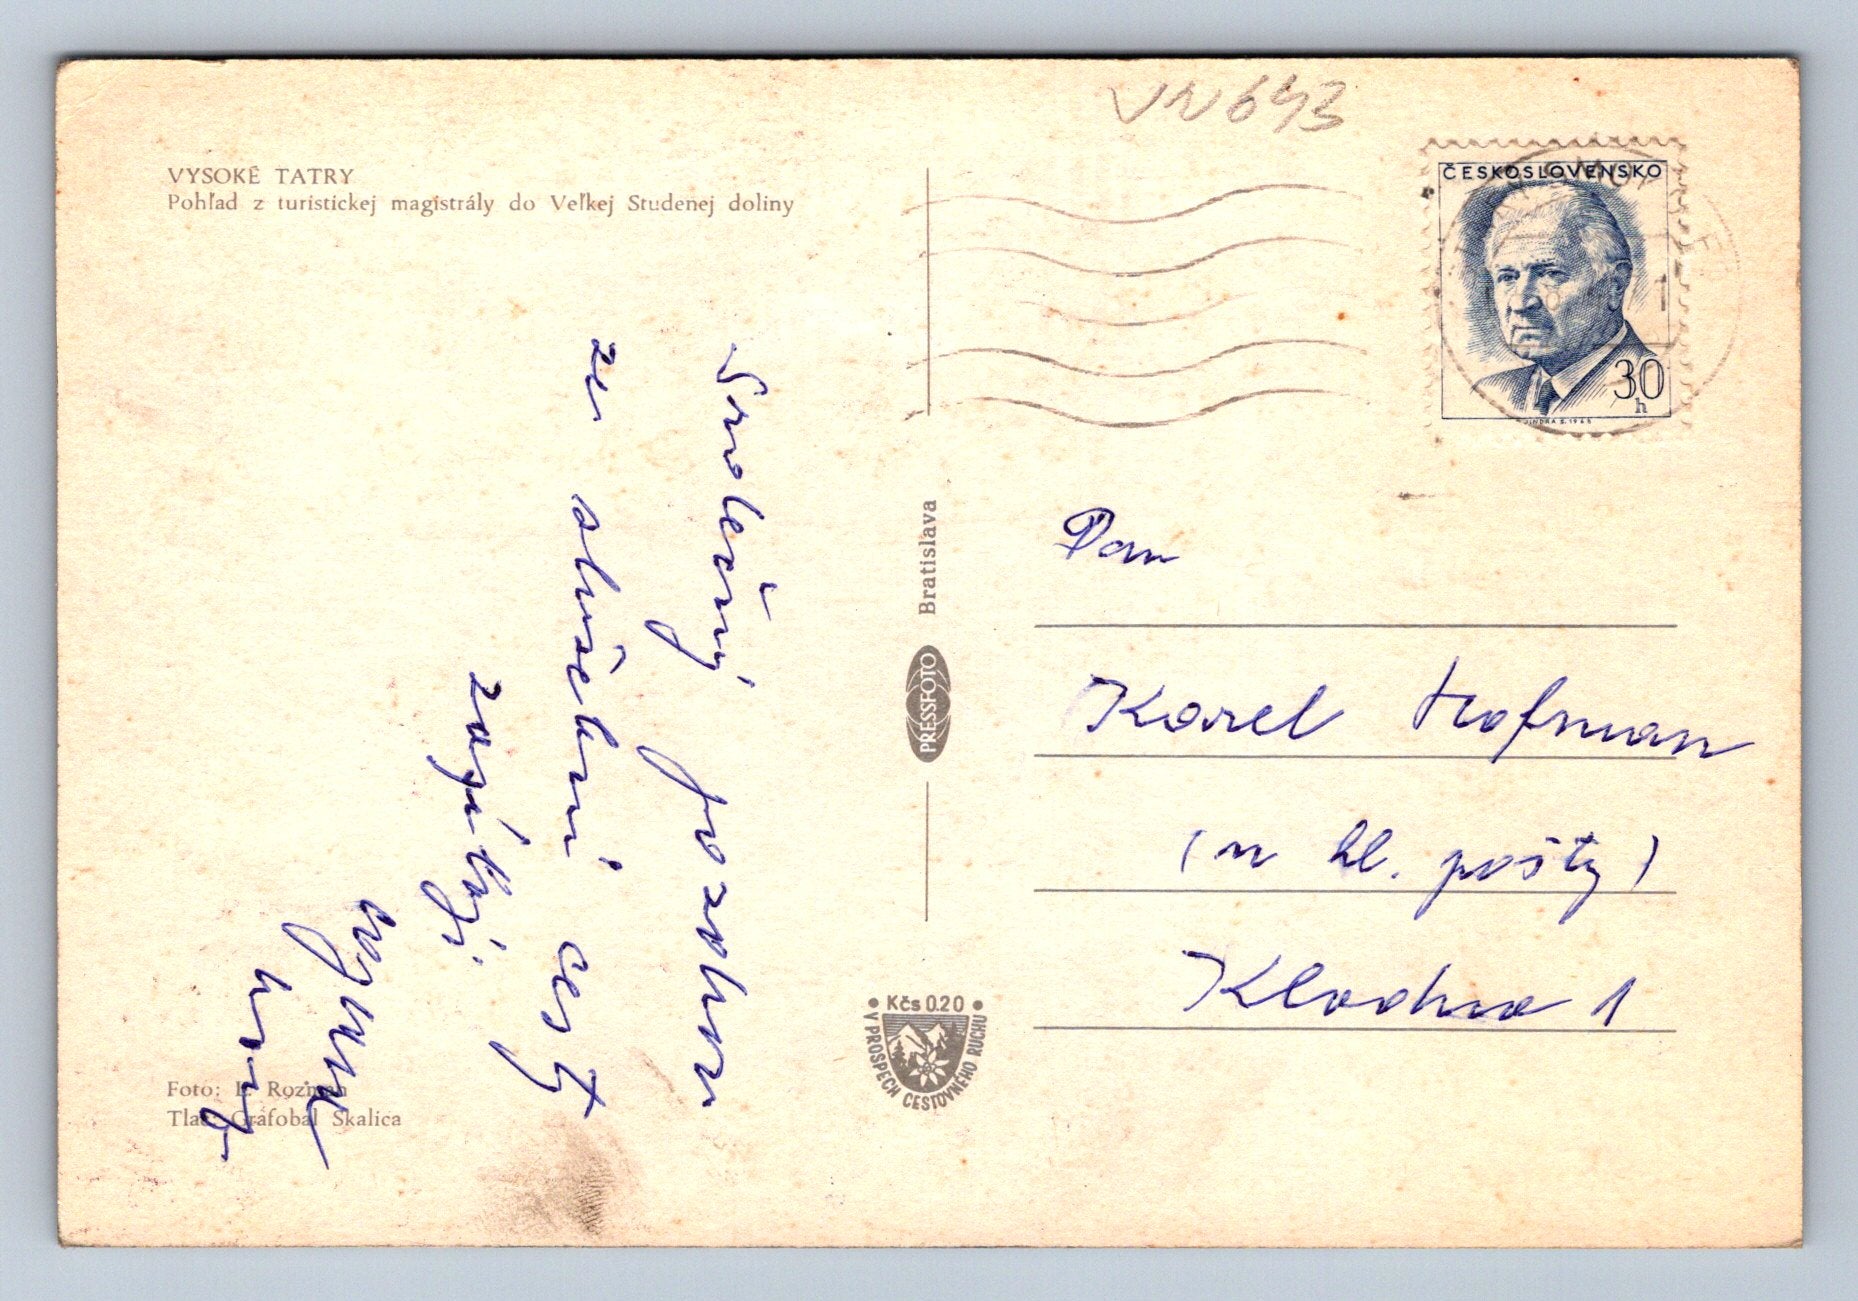 VN 643
VYSOKÉ TATRY
Pohľad z turistickej magistrály do Veľkej Studenej doliny
ČESKOSLOVENSKO
30
h
JINDRA S. 1968
Srdečný pozdrav
ze služební cesty
zasílají
Bratislava
PRESSFOTO
Pan
Karel Hofman
(u hl. pošty)
Kladno 1
Kčs 0.20
V PROSPECH CESTOVNÉHO RUCHU
Foto: L. Rozman
Tlač: Grafobal Skalica